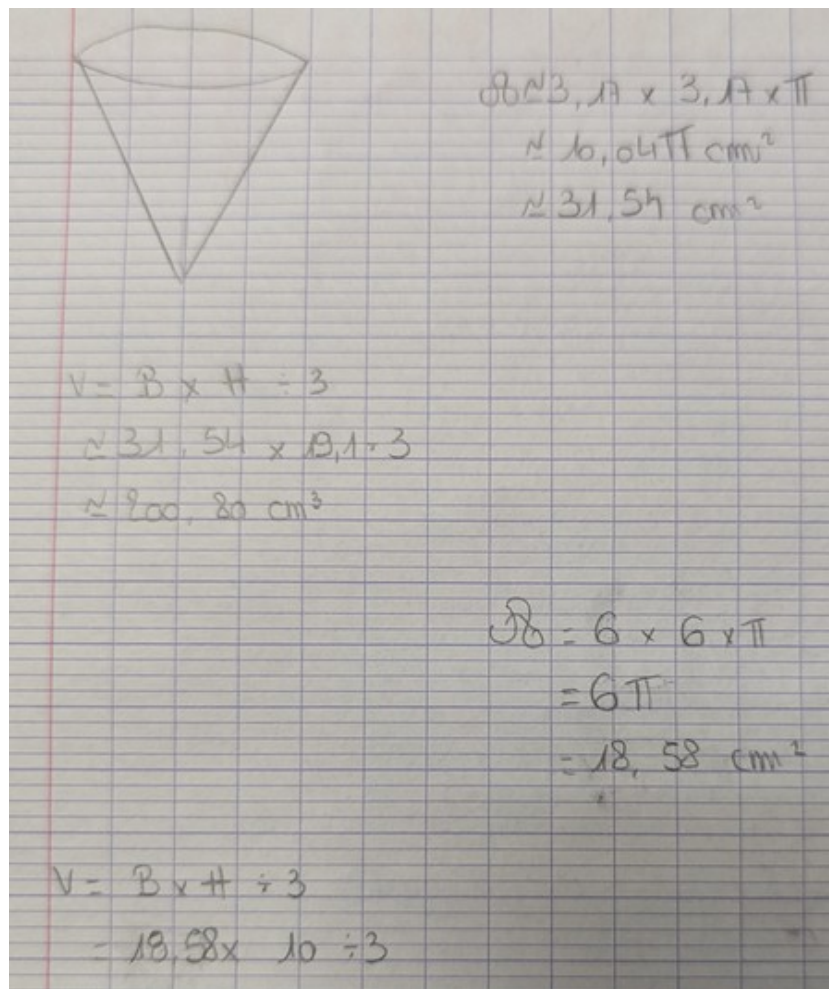 B ≈ 3,17 x 3,17 x π
≈ 10,04π cm²
≈ 31,54 cm²
V = B x H ÷ 3
≈ 31,54 x 19,1 ÷ 3
≈ 200,80 cm³
B = 6 x 6 x π
= 6π
= 18,58 cm²
V = B x H ÷ 3
= 18,58 x 10 ÷ 3